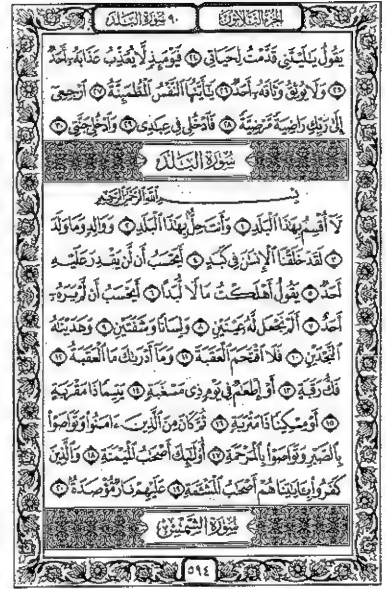 الجزء الثلاثون
٩٠ سورة البلد
يَقُولُ يَٰلَيْتَنِى قَدَّمْتُ لِحَيَاتِى ٢٤ فَيَوْمَئِذٍ لَّا يُعَذِّبُ عَذَابَهُۥٓ أَحَدٌ
٢٥ وَلَا يُوثِقُ وَثَاقَهُۥٓ أَحَدٌ ٢٦ يَٰٓأَيَّتُهَا ٱلنَّفْسُ ٱلْمُطْمَئِنَّةُ ٢٧ ٱرْجِعِىٓ
إِلَىٰ رَبِّكِ رَاضِيَةً مَّرْضِيَّةً ٢٨ فَٱدْخُلِى فِى عِبَٰدِى ٢٩ وَٱدْخُلِى جَنَّتِى ٣٠
سورة البلد
بِسْمِ ٱللَّهِ ٱلرَّحْمَٰنِ ٱلرَّحِيمِ
لَآ أُقْسِمُ بِهَٰذَا ٱلْبَلَدِ ١ وَأَنتَ حِلٌّۢ بِهَٰذَا ٱلْبَلَدِ ٢ وَوَالِدٍ وَمَا وَلَدَ
٣ لَقَدْ خَلَقْنَا ٱلْإِنسَٰنَ فِى كَبَدٍ ٤ أَيَحْسَبُ أَن لَّن يَقْدِرَ عَلَيْهِ
أَحَدٌ ٥ يَقُولُ أَهْلَكْتُ مَالًا لُّبَدًا ٦ أَيَحْسَبُ أَن لَّمْ يَرَهُۥٓ
أَحَدٌ ٧ أَلَمْ نَجْعَل لَّهُۥ عَيْنَيْنِ ٨ وَلِسَانًا وَشَفَتَيْنِ ٩ وَهَدَيْنَٰهُ
ٱلنَّجْدَيْنِ ١٠ فَلَا ٱقْتَحَمَ ٱلْعَقَبَةَ ١١ وَمَآ أَدْرَىٰكَ مَا ٱلْعَقَبَةُ ١٢
فَكُّ رَقَبَةٍ ١٣ أَوْ إِطْعَٰمٌ فِى يَوْمٍ ذِى مَسْغَبَةٍ ١٤ يَتِيمًا ذَا مَقْرَبَةٍ
١٥ أَوْ مِسْكِينًا ذَا مَتْرَبَةٍ ١٦ ثُمَّ كَانَ مِنَ ٱلَّذِينَ ءَامَنُوا۟ وَتَوَاصَوْا۟
بِٱلصَّبْرِ وَتَوَاصَوْا۟ بِٱلْمَرْحَمَةِ ١٧ أُو۟لَٰٓئِكَ أَصْحَٰبُ ٱلْمَيْمَنَةِ ١٨ وَٱلَّذِينَ
كَفَرُوا۟ بِـَٔايَٰتِنَا هُمْ أَصْحَٰبُ ٱلْمَشْـَٔمَةِ ١٩ عَلَيْهِمْ نَارٌ مُّؤْصَدَةٌۢ ٢٠
سورة الشمس
٥٩٤